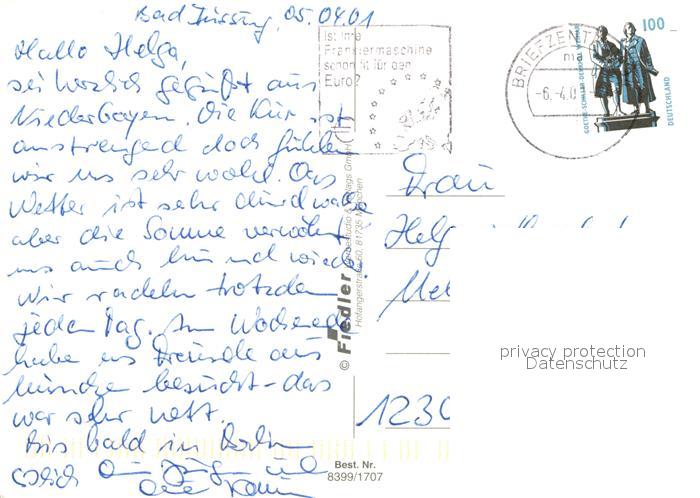 Bad Füssing, 05.04.01
Hallo Helga,
sei herzlich gegrüßt aus
Niederbayern. Die Kur ist
anstrengend doch fühlen
wir uns sehr wohl. Das
Wetter ist sehr durchwachsen
aber die Sonne verwöhnt
uns auch hin und wieder
Wir radeln trotzdem
jeden Tag. Am Wochenende
habe uns Freunde aus
München besucht - das
war sehr nett.
Bis bald in Berlin
Ist Ihre
Frankiermaschine
schon fit für den
Euro?
BRIEFZENT
-6.-4.0
100
GOETHE-SCHILLER-DENKMAL WEIMAR
DEUTSCHLAND
Frau
Helg
1230
© Fiedler
Fotostudio & Verlags GmbH
Hofangerstraße 60, 81735 München
Best. Nr.
8399/1707
privacy protection
Datenschutz